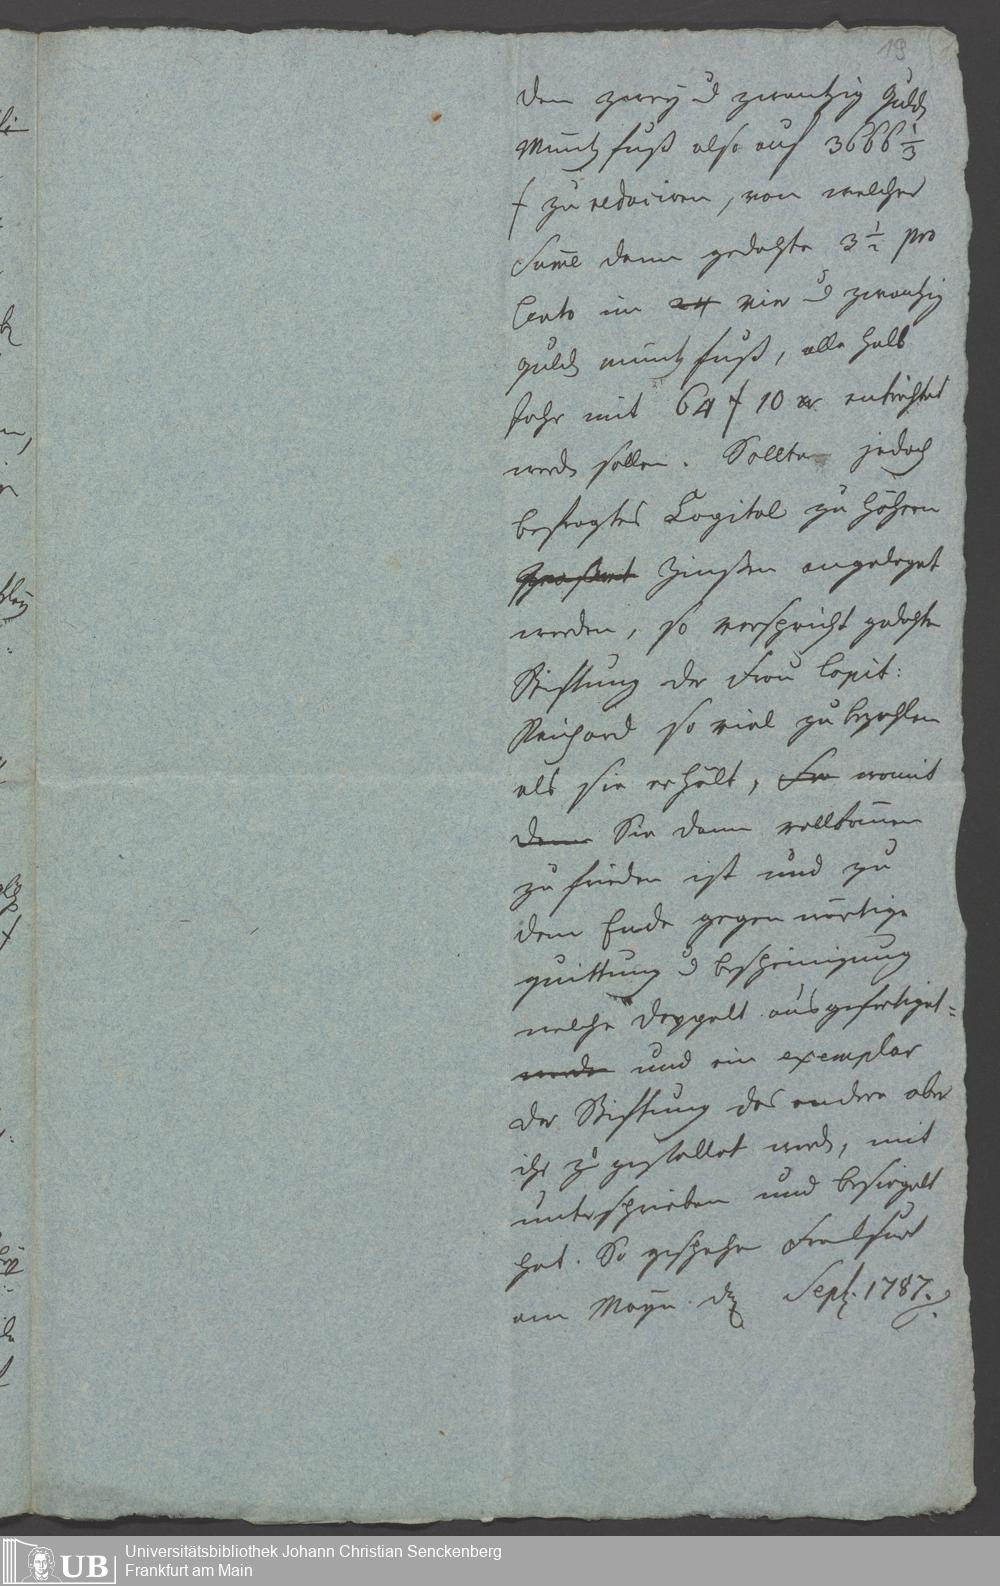 19
den zwey u zwantzig Guld
Müntz fuß also auf 3666 1/3
f zu reduciren, von welcher
Sume dann gedachte 3 1/2 pro
Cento im 24 vier u zwantzig
guld müntz fuß, alle halb
Jahr mit 64 f 10 xr entrichtet
werd sollen. Sollte jedoch
besagtes Capital zu höhern
Zinßen angeleget
werden, so verspricht gedachte
Stiftung der Frau Capit:
Reichard so viel zu bezahlen
als sie erhält, womit
denn Sie dann vollkomen
zu frieden ist und zu
dem Ende gegen wärtige
quittung u bescheinigung
welche doppelt ausgefertiget=
werden und ein exemplar
der Stiftung das andere aber
ihr zu gestellet word, mit
unterschrieben und besiegelt
hat. So geschehen Franckfurt
am Mayn d Sept. 1787.
UB
Universitätsbibliothek Johann Christian Senckenberg
Frankfurt am Main